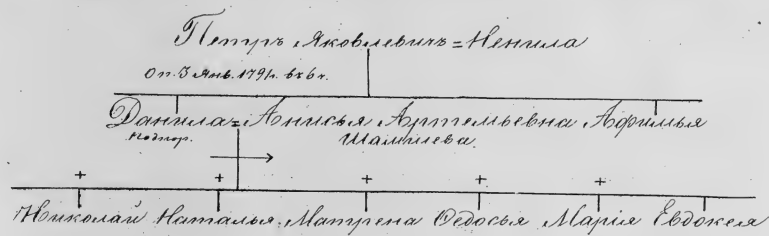 Петръ Яковлевичъ = Ненила
Оп. 3 Янв. 1791 г. въ 6 ч.
Данила = Анисья Артемьевна Афимья
подпор. Шамшева.
+ + + + +
Николай Наталья Матрена Ѳедосья Марія Евдокея